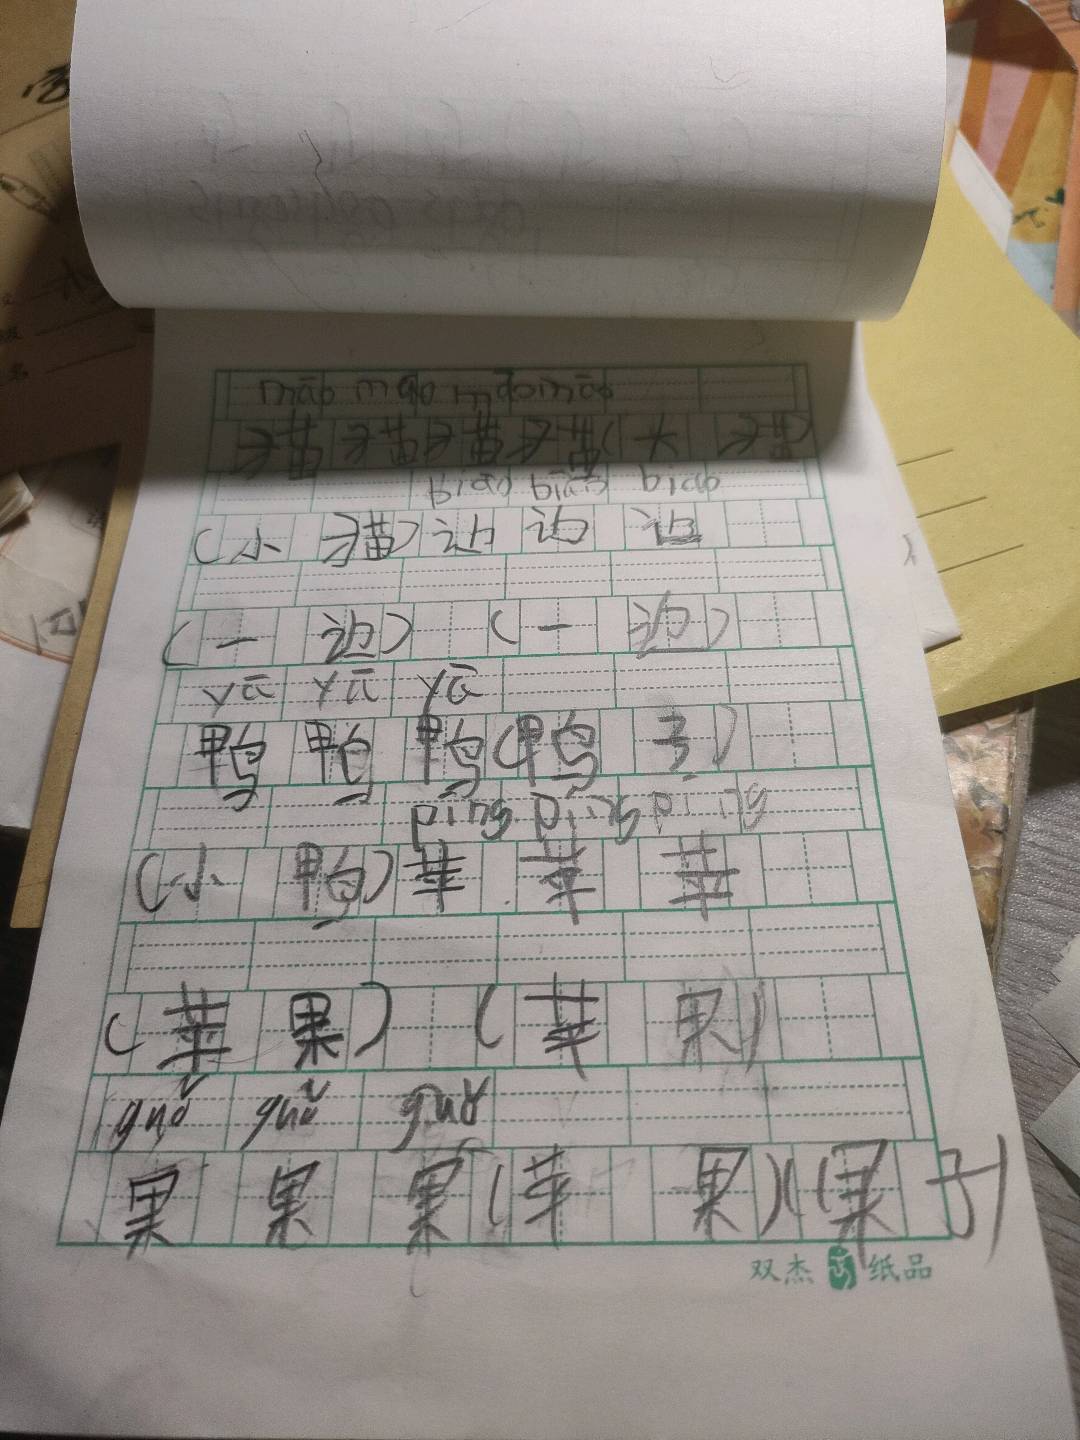 māo māo māo māo
猫 猫 猫 猫 (大 猫)
biān biān biān
(小 猫) 边 边 边
(一 边) (一 边)
yā yā yā
鸭 鸭 鸭 (鸭 子)
píng píng píng
(小 鸭) 苹 苹 苹
(苹 果) (苹 果)
guǒ guǒ guǒ
果 果 果 (苹 果) (果 子)
双杰 纸品